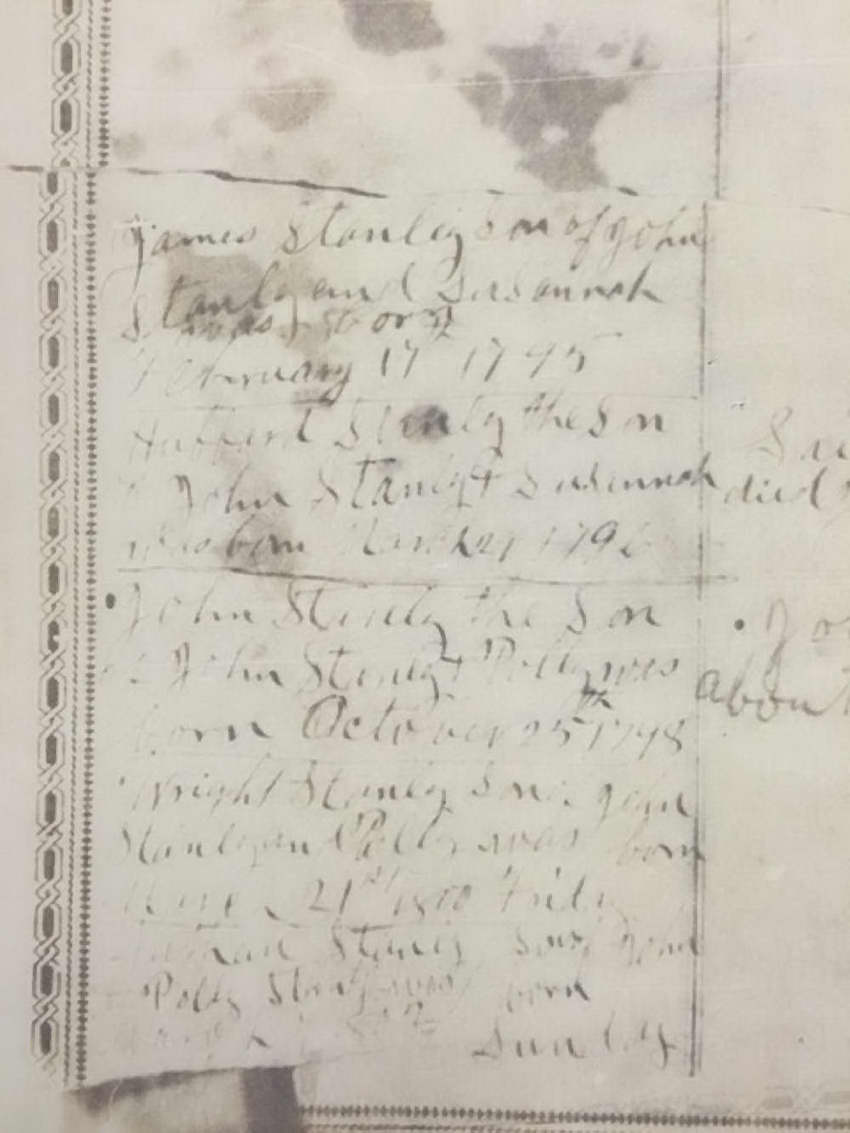 James Stanley Son of John
Stanly and Susannah
was Born
February 17th 1795
Hubbard Stanly the Son
John Stanly & Susannah
was born March 21 179
John Stanly the Son
John Stanly & Polly was
born October 25th 1798
Wright Stanly Son John
Stanly and Polly was born
21st 1800
Stanly Son John
Polly Stanly was born
Sunday
died
about